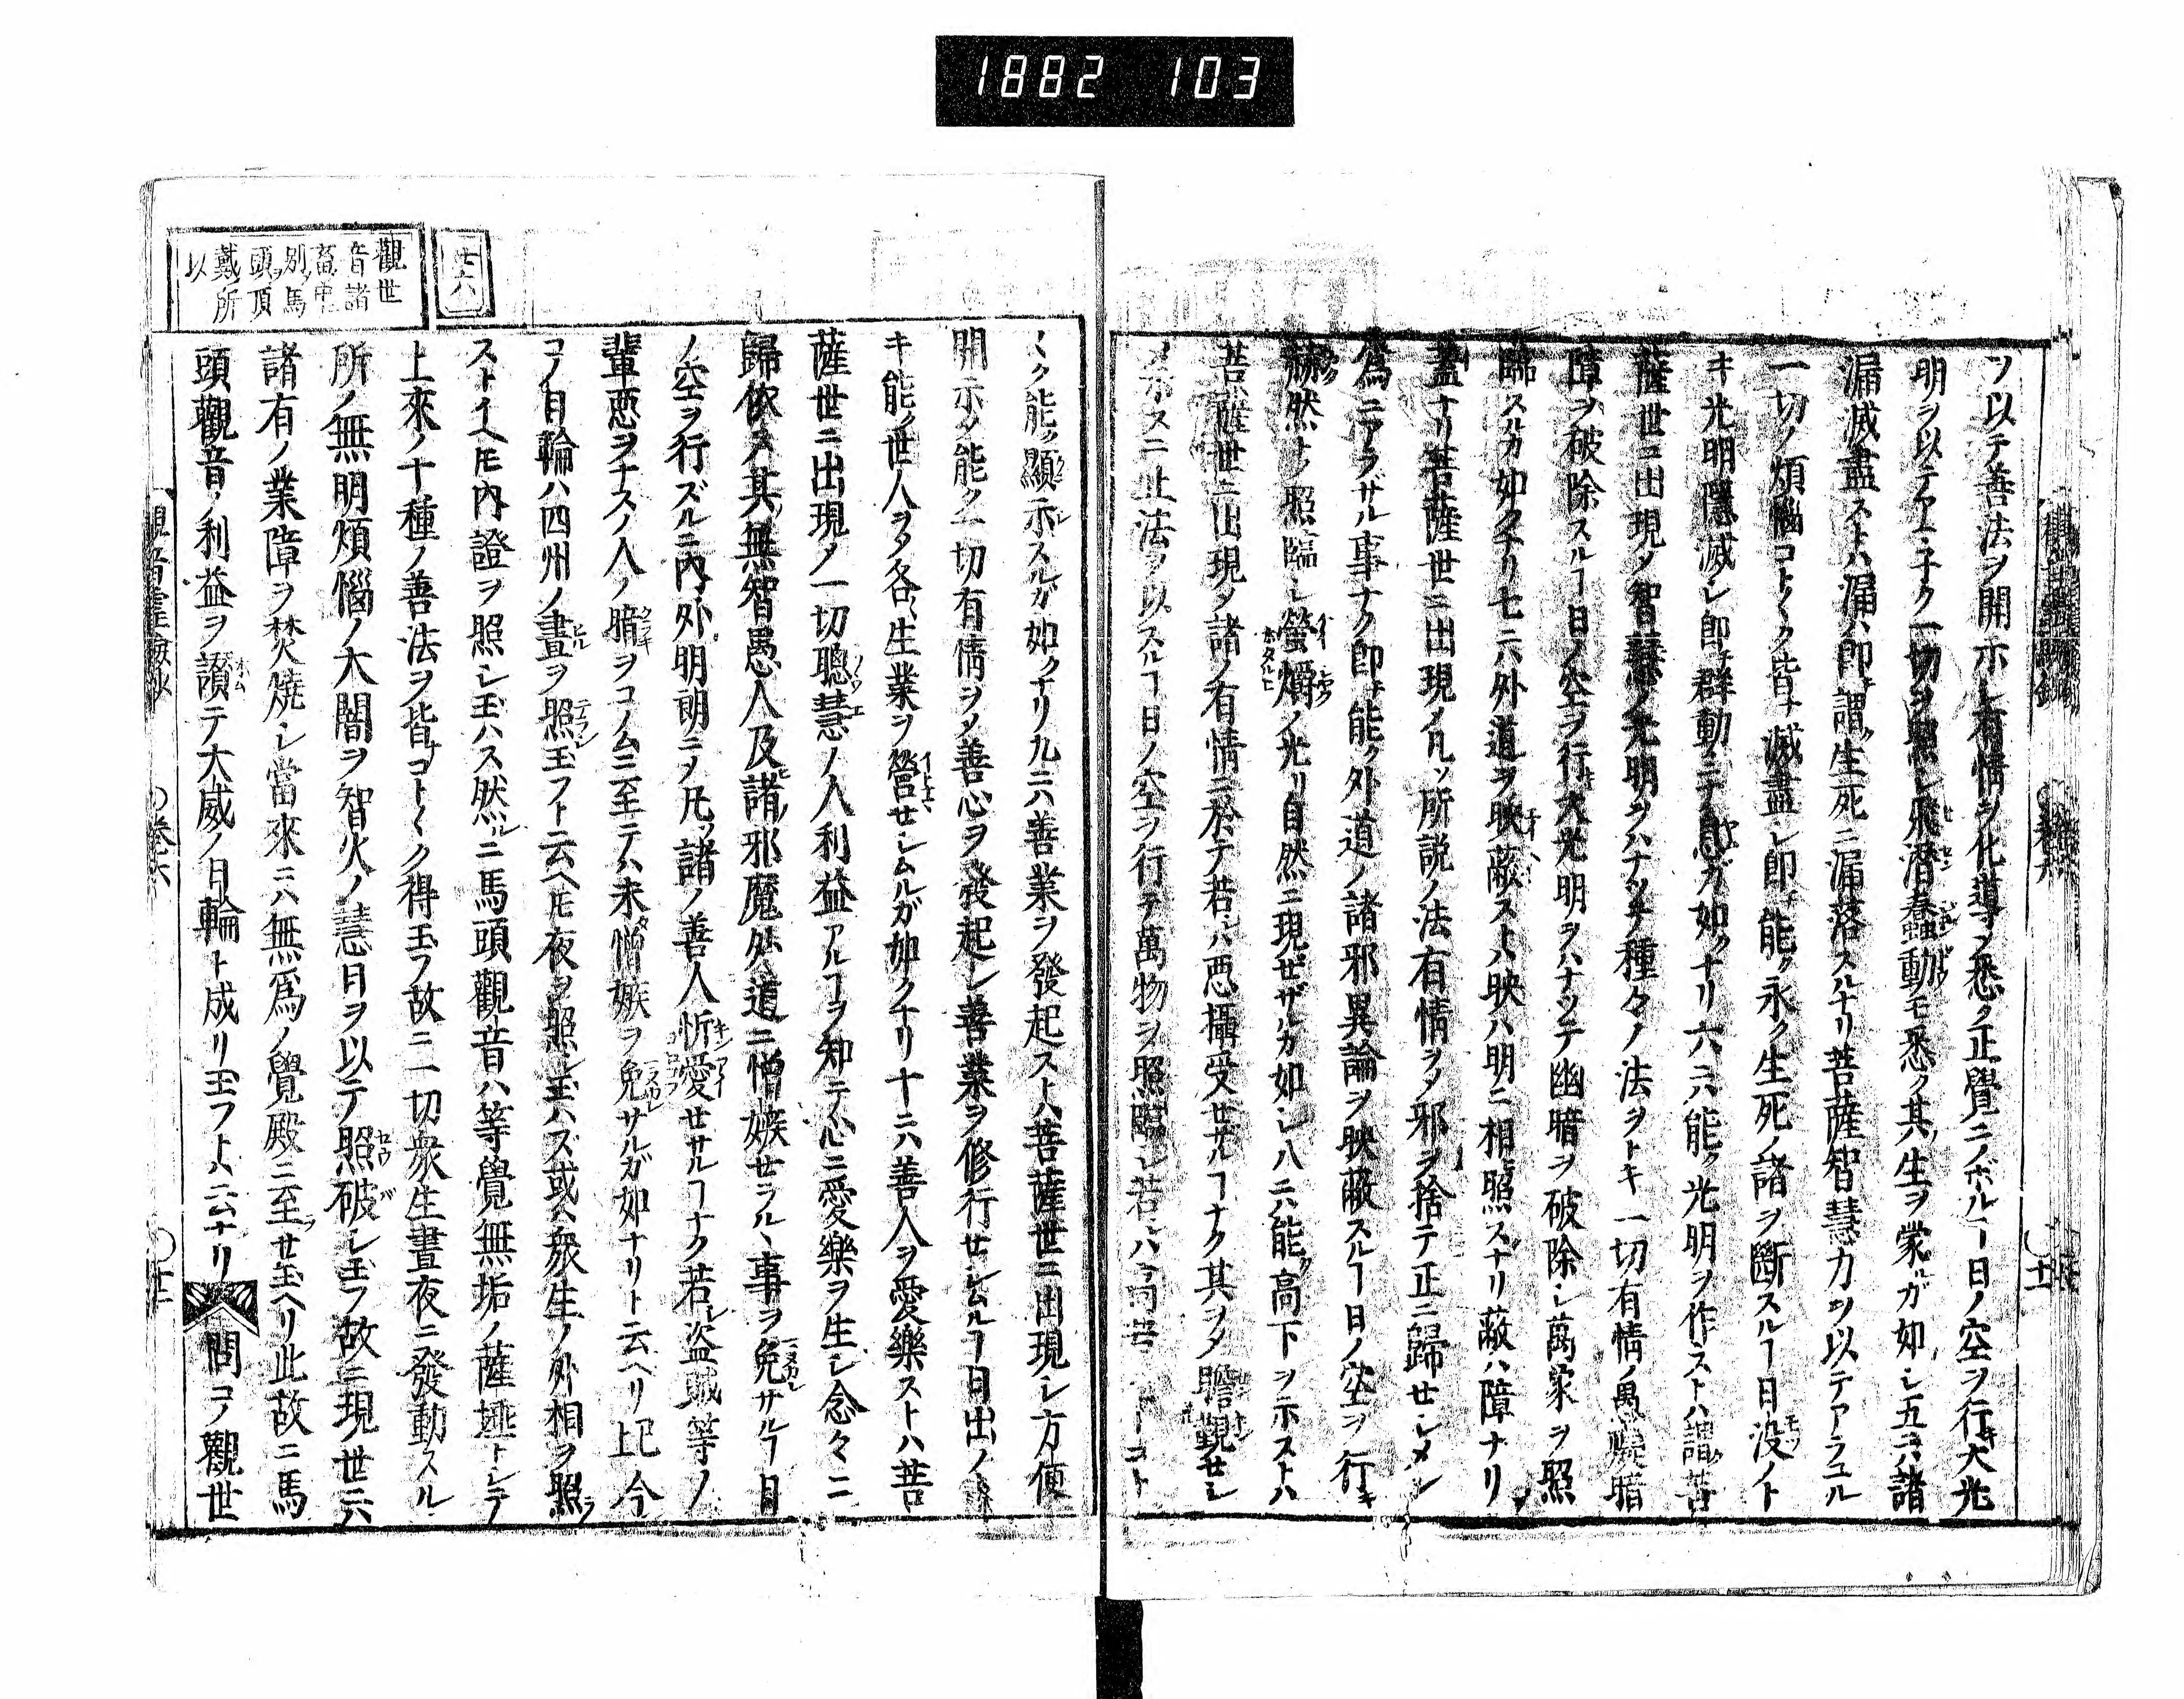 1882 103
ツ以テ善法ヲ開示シ有情ヲ化導ノ悉ク正覺ニノボルヿ日ノ空ヲ行キ大光
明ヲ以テ一切ヲ照レ飛潜蠢動モ悉ク其生ヲ蒙ルガ如シ五ニハ諸
漏滅盡ストハ漏ハ即チ謂ク生死ニ漏落スルナリ菩薩智慧力ヲ以テアラユル
一切ノ煩惱コト〱ク皆ナ滅盡シ即チ能ク永ク生死ノ諸ヲ斷スルヿ日没ノト
キ光明隱滅シ即チ群動ニテ息ガ如クナリ六ニハ能ク光明ヲ作ストハ謂ク菩
薩世ニ出現メ智慧ノ光明ヲハナツチ種々ノ法ヲトキ一切有情ノ愚癡暗
障ヲ破除スルヿ日ノ空ヲ行キ大光明ヲハナツテ幽暗ヲ破除シ萬象ヲ照
臨スルカ如クナリ七ニハ外道ヲ映蔽ストハ映ハ明ニ相照スナリ蔽ハ障ナリ
蓋ナリ菩薩世ニ出現ノ凡ソ所説ノ法有情ヲメ邪ヲ捨テ正ニ歸セシメン
爲ニアラザル事ナク即チ能ク外道ノ諸邪異論ヲ映蔽スルヿ日ノ空ヲ行キ
赫然ナメ照臨シ螢爝ノ光リ自然ニ現ゼザルカ如シ八ニハ能ク高下ヲ示ストハ
菩薩世ニ出現メ諸ノ有情ニ於テ若ハ惡攝受セサルヿナク其ヲメ瞻覲セシ
メ示スニ止法ヲ以スルヿ日ノ空ヲ行テ萬物ヲ照臨シ若ハ高 コト
〱ク能ク顯示スルガ如クナリ九ニハ善業ヲ發起ストハ菩薩世ニ出現シ方便
開示メ能ク一切有情ヲメ善心ヲ發起シ善業ヲ修行セシムルヿ日出ノ
キ能ク世人ヲメ各〻生業ヲ營セシムルガ如クナリ十ニハ善人ヲ愛樂ストハ菩
薩世ニ出現メ一切聰慧ノ人利益アルヿヲ知テ心ニ愛樂ヲ生シ念々ニ
歸依ス其ノ無智愚人及ヒ諸ノ邪魔外道ニ憎嫉セラル、事ヲ免サルヿ日
ノ空ヲ行ズルニ内外明朗ニメ凡ソ諸ノ善人忻愛セサルヿナク若シ盜賊等ノ
輩惡ヲナスノ人ノ暗ヲコノムニ至テハ未タ憎嫉ヲ免サルガ如ナリト云ヘリ已上今
コノ日輪ハ四州ノ晝ヲ照玉フト云ヘ𪜈夜ヲ照シ玉ハズ或ハ衆生ノ外相ヲ照ラ
ストイヘ𪜈内證ヲ照シ玉ハス然ルニ馬頭觀音ハ等覺無垢ノ薩埵トシテ
上來ノ十種ノ善法ヲ皆ナコト〱ク得玉フ故ニ一切衆生晝夜ニ發動スル
所ノ無明煩惱ノ大闇ヲ智火ノ慧日ヲ以テ照破シ玉フ故ニ現世ニハ
諸有ノ業障ヲ焚燒シ當來ニハ無爲ノ覺殿ニ至ラセ玉ヘリ此故ニ馬
頭觀音ノ利益ヲ讃テ大威ノ日輪ト成リ玉フトハ云ナリ 問コノ觀世
廿六
觀世
音諸
畜中
別ノ馬
頭ヲ頂
戴所
以